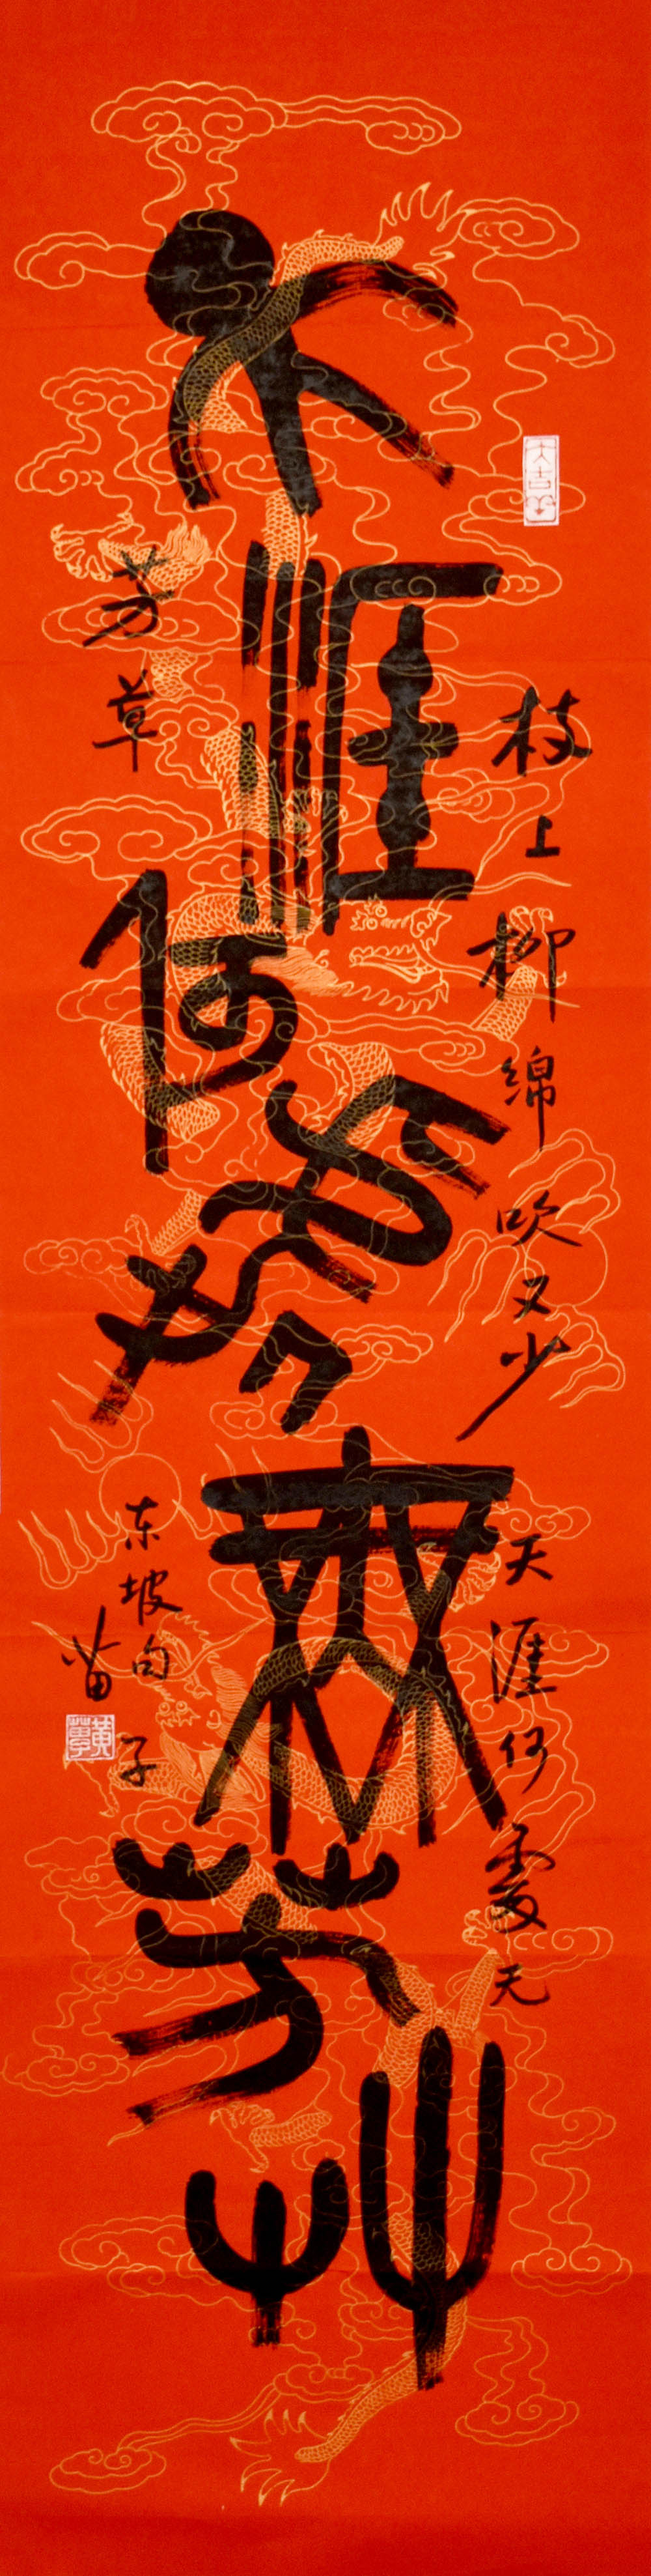 天涯何處無芳草
大吉
枝上柳绵吹又少
天涯何處无
芳草
东坡句
苗子